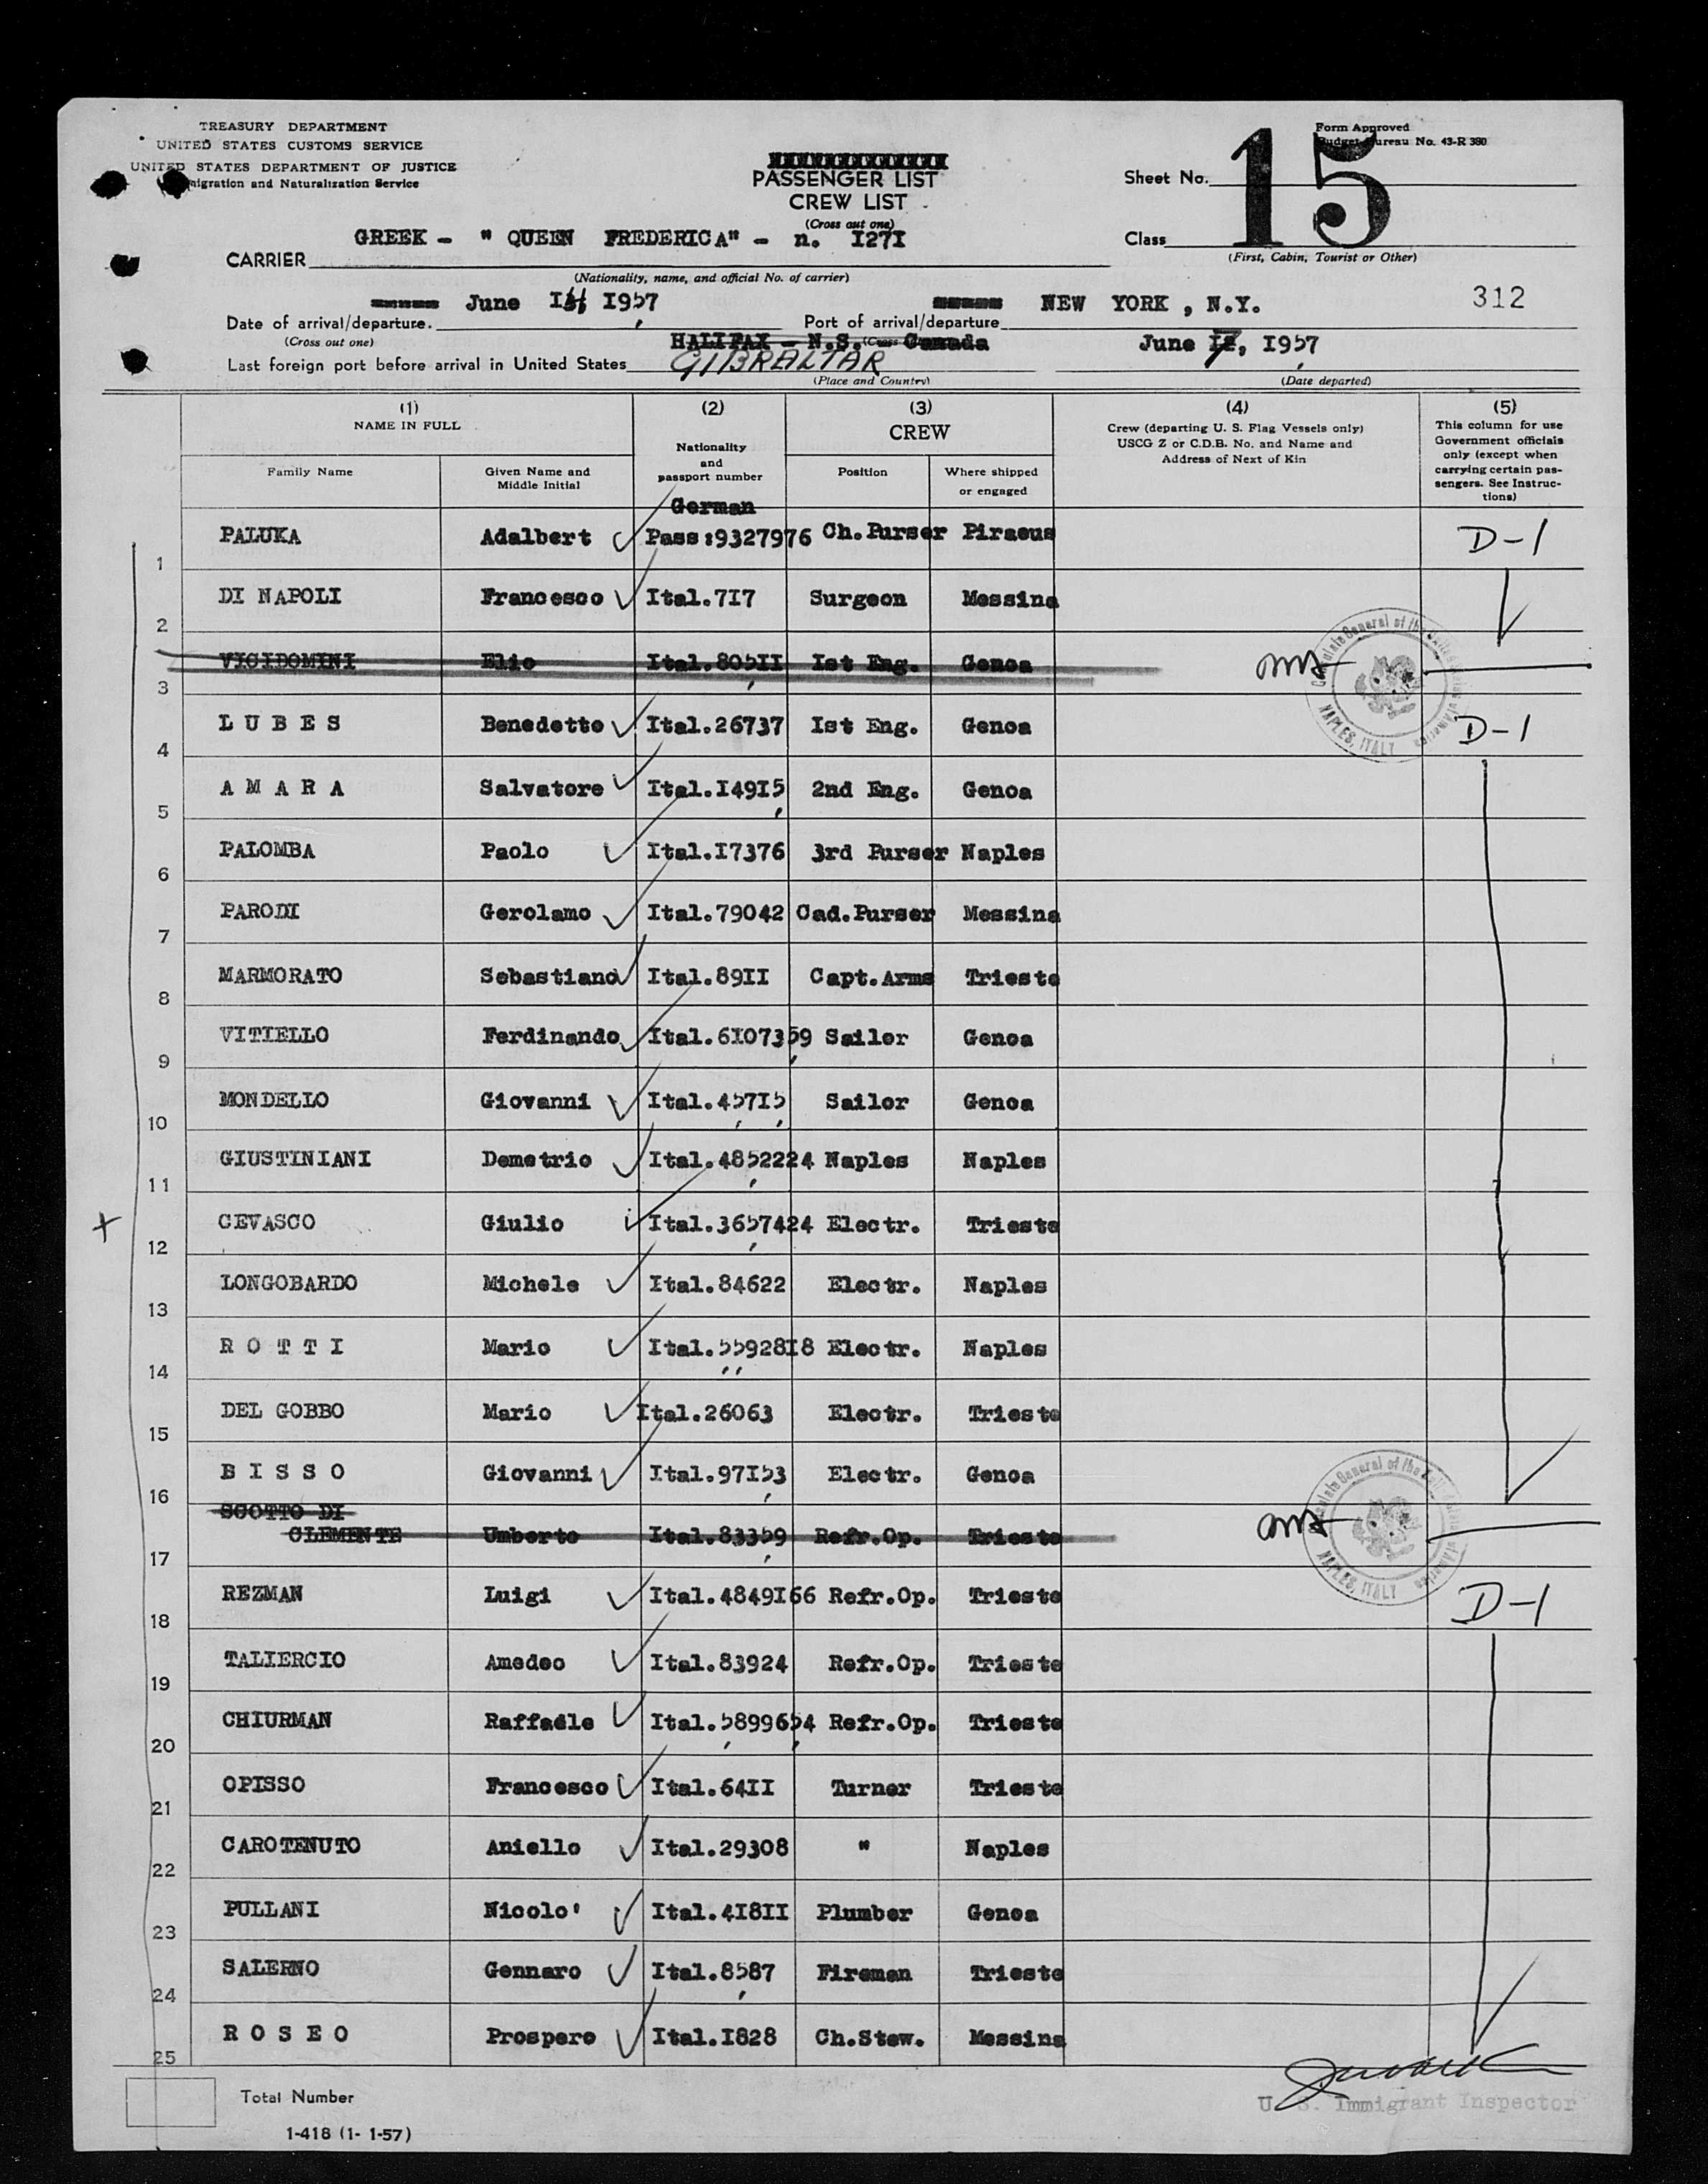 TREASURY DEPARTMENT
UNITED STATES CUSTOMS SERVICE
UNITED STATES DEPARTMENT OF JUSTICE
migration and Naturalization Service
PASSENGER LIST
CREW LIST
(Cross out one)
Form Approved
Budget Bureau No. 43-R 380
Sheet No. 15
Class
(First, Cabin, Tourist or Other)
CARRIER GREEK - " QUEEN FREDERICA" - n. I27I
(Nationality, name, and official No. of carrier)
Date of arrival/departure. June I957
(Cross out one)
Port of arrival/departure NEW YORK , N.Y.
312
HALIFAX - N.S. Canada
Last foreign port before arrival in United States GIBRALTAR
(Place and Country)
June 7, I957
(Date departed)
(1) NAME IN FULL
Family Name
Given Name and Middle Initial
(2) Nationality and passport number
(3) CREW
Position
Where shipped or engaged
(4) Crew (departing U. S. Flag Vessels only) USCG Z or C.D.B. No. and Name and Address of Next of Kin
(5) This column for use Government officials only (except when carrying certain passengers. See Instructions)
German
1 PALUKA Adalbert Pass:9327976 Ch.Purser Piraeus D-1
2 DI NAPOLI Francesco Ital.7I7 Surgeon Messina
3 VICIDOMINI Elio Ital.805II Ist Eng. Genoa
Consulate General of the United States of America NAPLES, ITALY
4 L U B E S Benedetto Ital.26737 Ist Eng. Genoa D-1
5 A M A R A Salvatore Ital.I49I5 2nd Eng. Genoa
6 PALOMBA Paolo Ital.I7376 3rd Purser Naples
7 PARODI Gerolamo Ital.79042 Cad.Purser Messina
8 MARMORATO Sebastiano Ital.89II Capt.Arms Trieste
9 VITIELLO Ferdinando Ital.6I07359 Sailor Genoa
10 MONDELLO Giovanni Ital.457I5 Sailor Genoa
11 GIUSTINIANI Demetrio Ital.4852224 Naples Naples
12 CEVASCO Giulio Ital.3657424 Electr. Trieste
13 LONGOBARDO Michele Ital.84622 Electr. Naples
14 R O T T I Mario Ital.55928I8 Electr. Naples
15 DEL GOBBO Mario Ital.26063 Electr. Trieste
16 B I S S O Giovanni Ital.97I53 Electr. Genoa
SCOTTO DI
17 CLEMENTE Umberto Ital.83359 Refr.Op. Trieste
Consulate General of the United States of America NAPLES, ITALY
18 REZMAN Luigi Ital.4849I66 Refr.Op. Trieste D-1
19 TALIERCIO Amedeo Ital.83924 Refr.Op. Trieste
20 CHIURMAN Raffaele Ital.5899654 Refr.Op. Trieste
21 OPISSO Francesco Ital.64II Turner Trieste
22 CAROTENUTO Aniello Ital.29308 " Naples
23 PULLANI Nicolo' Ital.4I8II Plumber Genoa
24 SALERNO Gennaro Ital.8587 Fireman Trieste
25 R O S E O Prospero Ital.I828 Ch.Stew. Messina
Total Number
U. S. Immigrant Inspector
1-418 (1- 1-57)